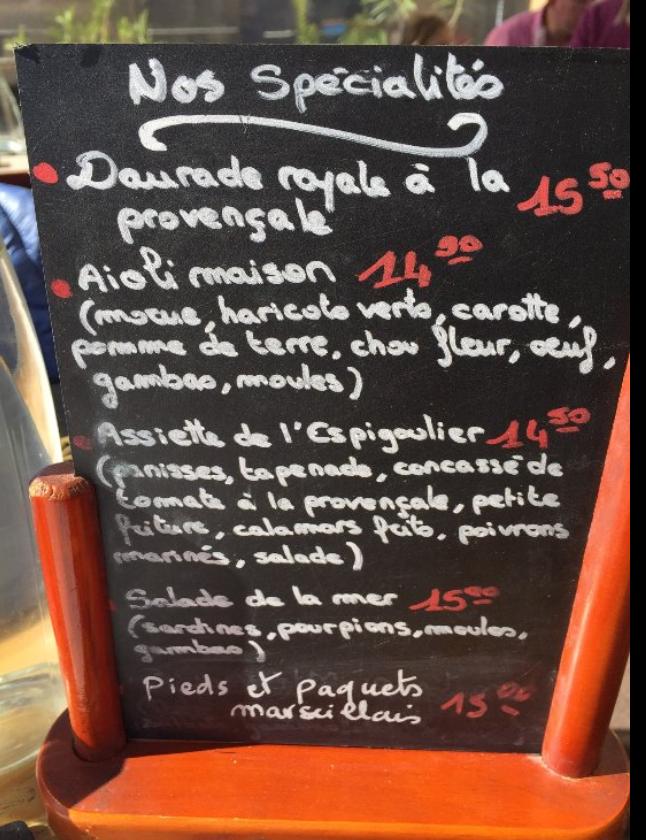 Nos Spécialités
Daurade royale à la 15 50
provençale
Aioli maison 14 90
(morue, haricots verts, carotte,
pomme de terre, chou fleur, œuf,
gambas, moules)
Assiette de l'Espigoulier 14 50
(panisses, tapenade, concassé de
tomate à la provençale, petite
friture, calamars frits, poivrons
marinés, salade)
Salade de la mer 15 00
(sardines, pourpions, moules,
gambas)
Pieds et paquets 15 00
marseillais